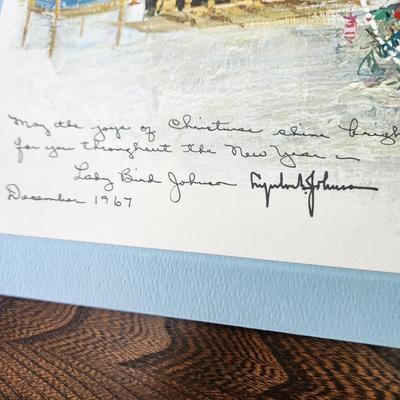 May the joys of Christmas shine brigh
for you throughout the New Year —
Lady Bird Johnson Lyndon B. Johnson
December 1967